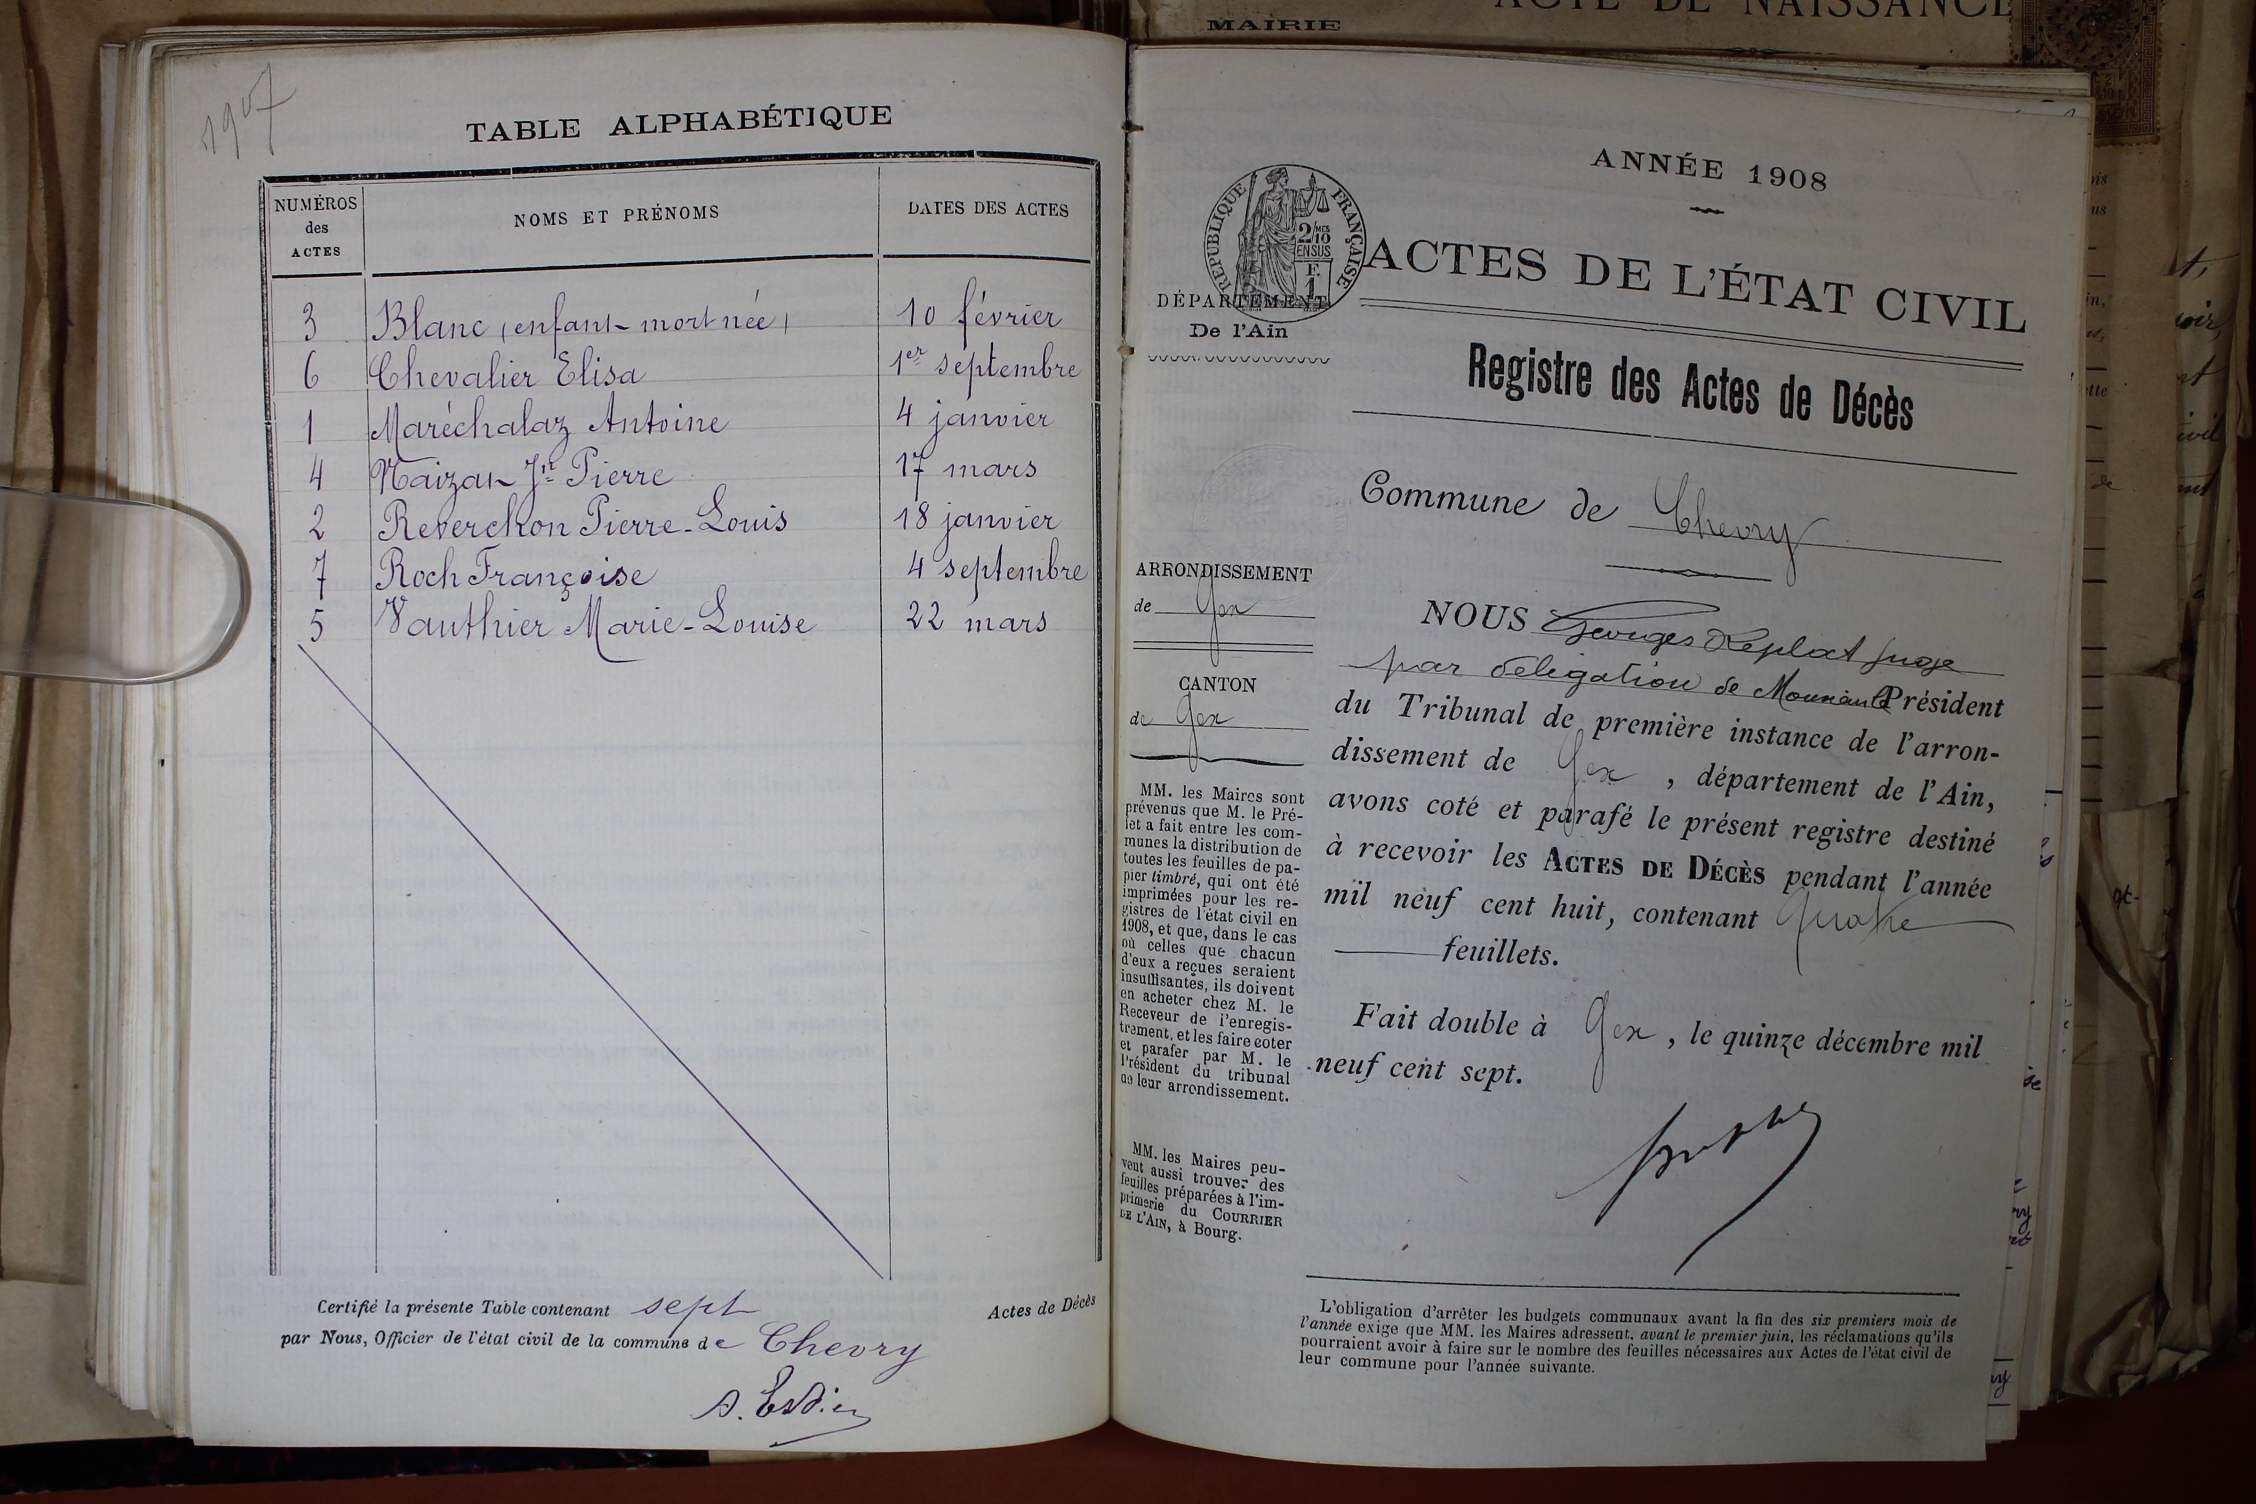 1907
TABLE ALPHABÉTIQUE
NUMÉROS des ACTES
NOMS ET PRÉNOMS
DATES DES ACTES
3 Blanc (enfant mort née) 10 février
6 Chevalier Elisa 1er septembre
1 Maréchalaz Antoine 4 janvier
4 Naizan Jn Pierre 17 mars
2 Reverchon Pierre-Louis 18 janvier
7 Roch Françoise 4 septembre
5 Vauthier Marie-Louise 22 mars
Certifié la présente Table contenant sept Actes de Décès
par Nous, Officier de l'état civil de la commune de Chevry
MAIRIE
ACTE DE NAISSANCE
ANNÉE 1908
RÉPUBLIQUE FRANÇAISE
2/10 MES
EN SUS
F.
1
ACTES DE L'ÉTAT CIVIL
DÉPARTEMENT
De l'Ain
Registre des Actes de Décès
Commune de Chevry
ARRONDISSEMENT
de Gex
CANTON
de Gex
NOUS Georges Juge
par délégation de Président
du Tribunal de première instance de l'arron-
dissement de Gex, département de l'Ain,
avons coté et parafé le présent registre destiné
à recevoir les ACTES DE DÉCÈS pendant l'année
mil neuf cent huit, contenant quatre
feuillets.
Fait double à Gex, le quinze décembre mil
neuf cent sept.
MM. les Maires sont
prévenus que M. le Pré-
fet a fait entre les com-
munes la distribution de
toutes les feuilles de pa-
pier timbré, qui ont été
imprimées pour les re-
gistres de l'état civil en
1908, et que, dans le cas
où celles que chacun
d'eux a reçues seraient
insuffisantes, ils doivent
en acheter chez M. le
Receveur de l'enregis-
trement, et les faire coter
et parafer par M. le
Président du tribunal
de leur arrondissement.
MM. les Maires peu-
vent aussi trouver des
feuilles préparées à l'im-
primerie du COURRIER
DE L'AIN, à Bourg.
L'obligation d'arrêter les budgets communaux avant la fin des six premiers mois de
l'année exige que MM. les Maires adressent, avant le premier juin, les réclamations qu'ils
pourraient avoir à faire sur le nombre des feuilles nécessaires aux Actes de l'état civil de
leur commune pour l'année suivante.